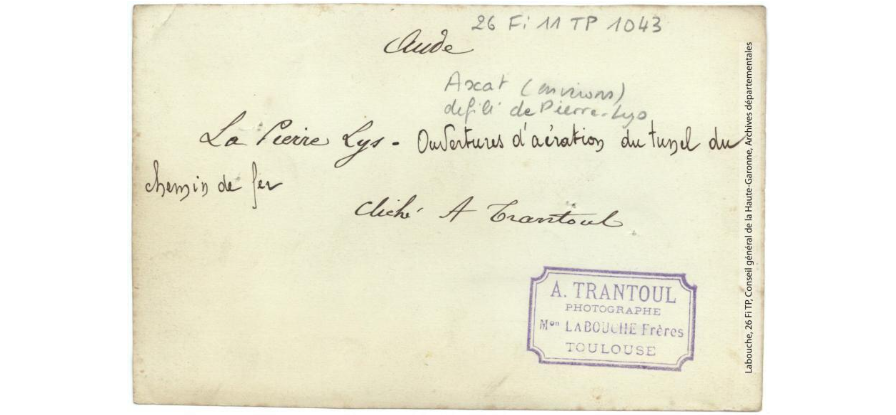 26 Fi 11 TP 1043
Aude
Axat (environs)
défilé de Pierre-Lys
La Pierre Lys - Ouvertures d'aération du tunnel du
chemin de fer
Cliché A Trantoul
A. TRANTOUL
PHOTOGRAPHE
Mon LABOUCHE Frères
TOULOUSE
Labouche, 26 Fi TP, Conseil général de la Haute-Garonne, Archives départementales